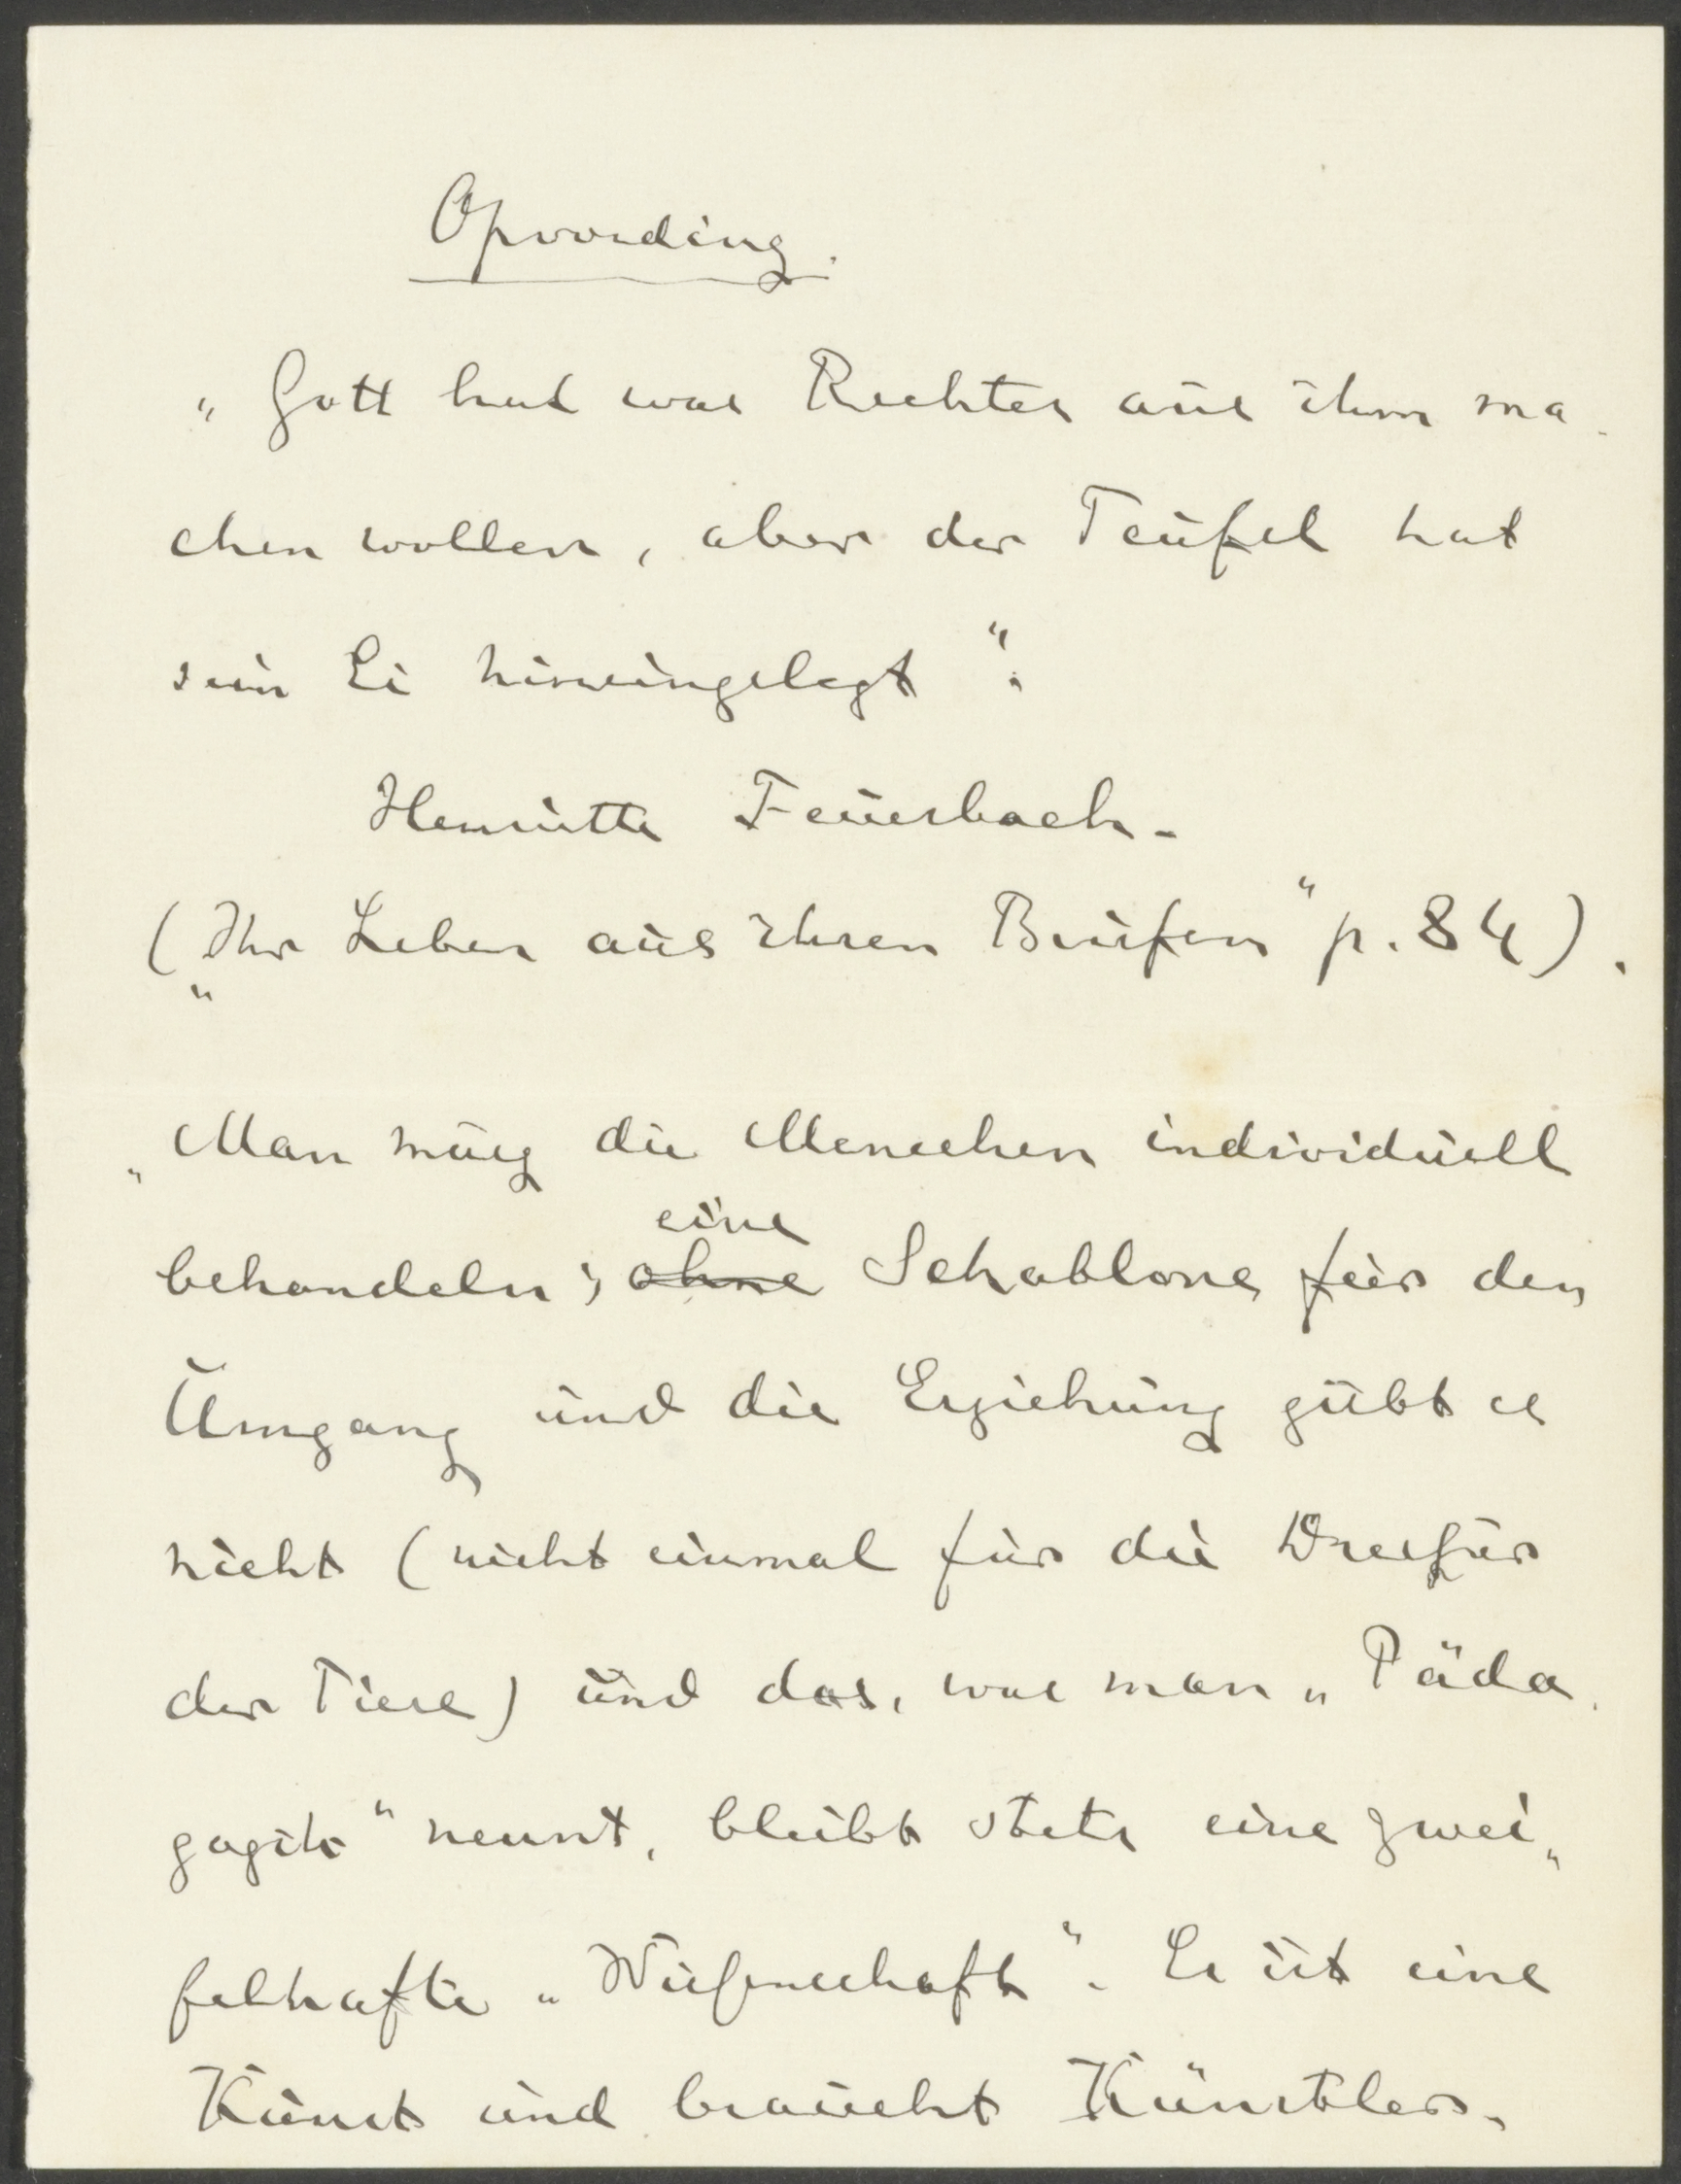 Opvoeding.
„Gott hat was Rechtes aus ihm ma-
chen wollen, aber der Teufel hat
sein Ei hineingelegt“.
Henriette Feuerbach.
(„Ihr Leben aus ihren Briefen“ p. 84).
„Man muß die Menschen individuell
eine
behandeln; ~~ohne~~ Schablone für den
Umgang und die Erziehung gibt es
nicht (nicht einmal für die Dreßur
der Tiere) und das, was man „Päda-
gogik“ nennt, bleibt stets eine zwei-
felhafte „Wißenschaft“. Es ist eine
Kunst und braucht Künstler.